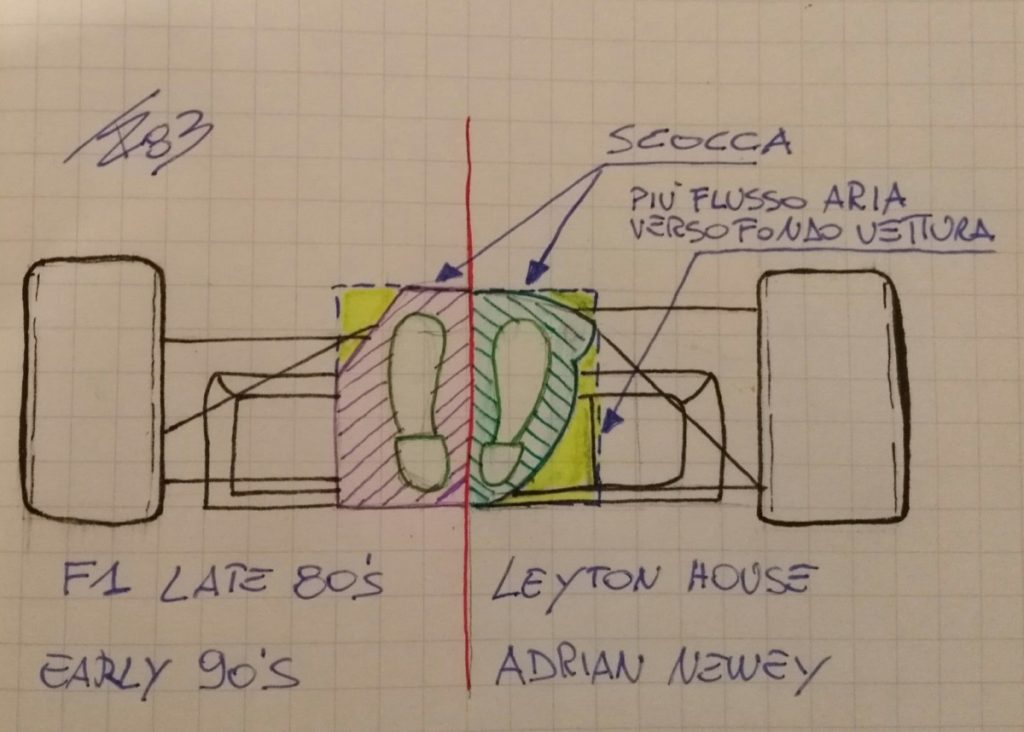 83
SCOCCA
PIÙ FLUSSO ARIA
VERSO FONDO VETTURA
F1 LATE 80'S
EARLY 90'S
LEYTON HOUSE
ADRIAN NEWEY